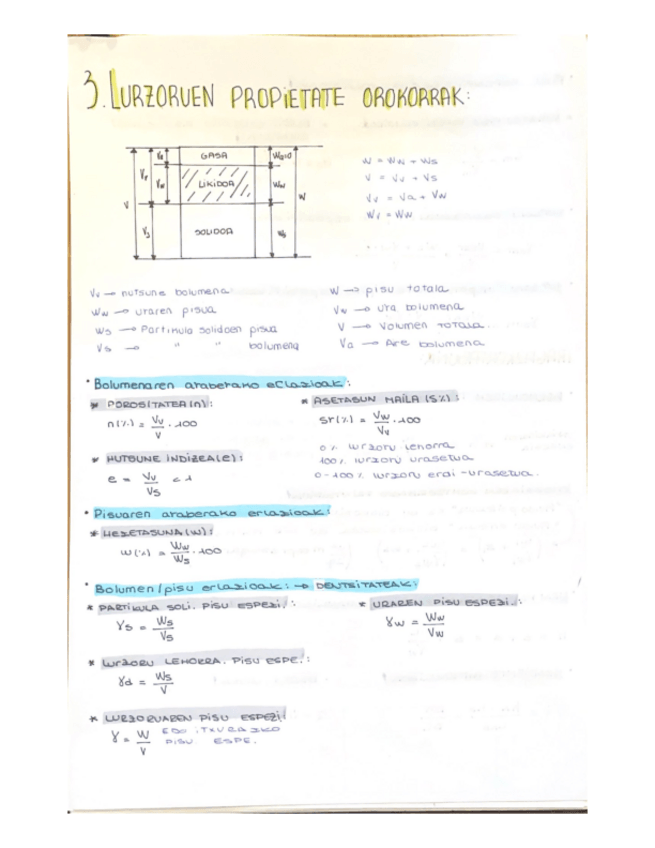 3. LURZORUEN PROPIETATE OROKORRAK:
GASA
LIKIDOA
SOLIDOA
V
Vv
Va
Vw
Vs
Wa=0
Ww
Ws
W
W = Ww + Ws
V = Vv + Vs
Vv = Va + Vw
Wv = Ww
Vv → hutsune bolumena
Ww → uraren pisua
Ws → Partikula solidoen pisua
Vs → " " bolumena
W → pisu totala
Vw → ura bolumena
V → Volumen TOTALA.
Va → Aire bolumena
· Bolumenaren araberako erlazioak:
* POROSITATEA (n):
n(%) = Vv/V · 100
* HUTSUNE INDIZEA (e):
e = Vv/Vs < 1
* ASETASUN MAILA (S%):
Sr(%) = Vw/Vv · 100
0% lurzoru lehorra
100% lurzoru urasetua
0-100% lurzoru erdi-urasetua.
· Pisuaren araberako erlazioak:
* HEZETASUNA (W):
W(%) = Ww/Ws · 100
· Bolumen/pisu erlazioak: → DENTSITATEAK:
* PARTIKULA SOLI. PISU ESPEZI.:
γs = Ws/Vs
* URAREN PISU ESPEZI.:
γw = Ww/Vw
* LURZORU LEHORRA. PISU ESPE.:
γd = Ws/V
* LURZORUAREN PISU ESPEZI:
γ = W/V EDO ITXURAZKO
PISU ESPE.